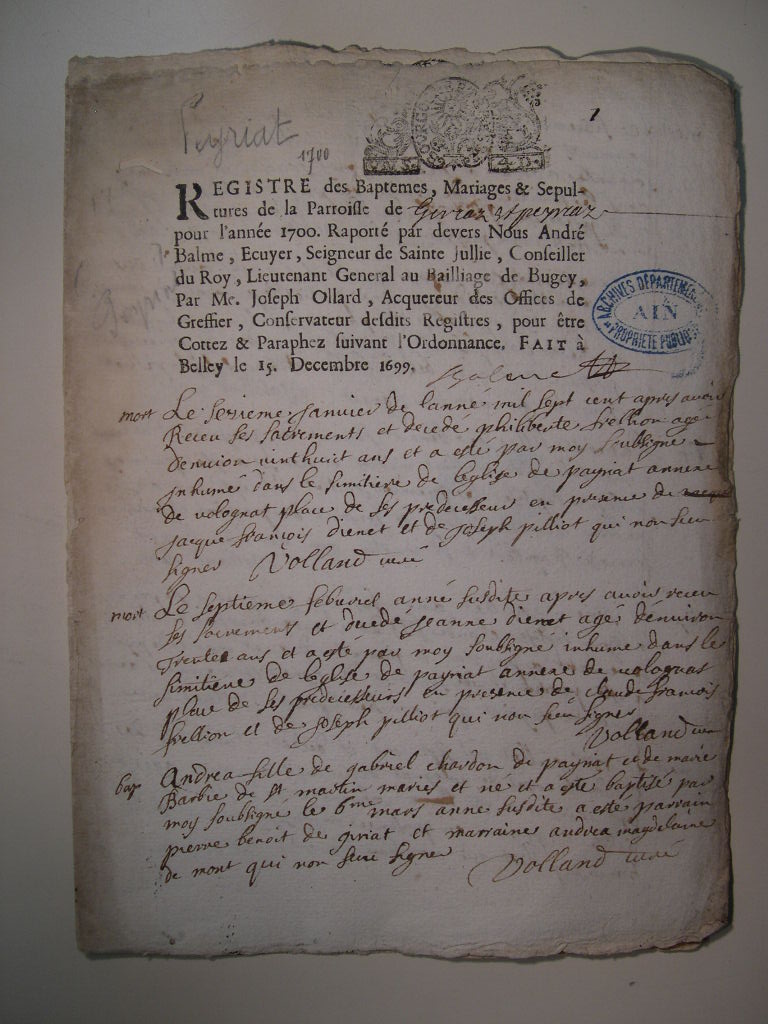 1
Peyriat
1700
REGISTRE des Baptemes, Mariages & Sepul-
tures de la Parroisse de Giriaz et peyriaz
pour l'année 1700. Raporté par devers Nous André
Balme, Ecuyer, Seigneur de Sainte Jullie, Conseiller
du Roy, Lieutenant General au Bailliage de Bugey,
Par Me. Joseph Ollard, Acquereur des Offices de
Greffier, Conservateur desdits Registres, pour être
Cottez & Paraphez suivant l'Ordonnance. FAIT à
Belley le 15. Decembre 1699.
ARCHIVES DÉPARTEMENTALES
AIN
PROPRIÉTÉ PUBLIQUE
Balme
mort Le sesieme janvier de lanné mil sept cent apres avoir
Receu ses sacrements et decede philiberte frellion agé
denviron vinthuit ans et a esté par moy soubsigné
inhumé dans le simitiere de leglise de payriat annexe
de volognat place de ses predecesseur en presence de
jacque francois dienet et de joseph pilliot qui non sceu
signer Volland curé
mort Le septieme febvriel anné susdite apres avoir receu
ses sacrements et decedé jeanne dienet agé denviron
trente ans et a esté par moy soubsigné inhume dans le
simitiere de leglise de payriat annexe de volognas
place de ses predecesseurs en presence de claude francois
frellion et de joseph pilliot qui non sceu signer
Volland curé
bap Andrea fille de gabriel chardon de payriat et de marie
Barbie de st martin maries et né et a esté baptisé par
moy soubsigné le 6me mars anne susdite a esté parrain
pierre benoit de giriat et marraine andrea magdelaine
de mont qui non sceu signer Volland curé